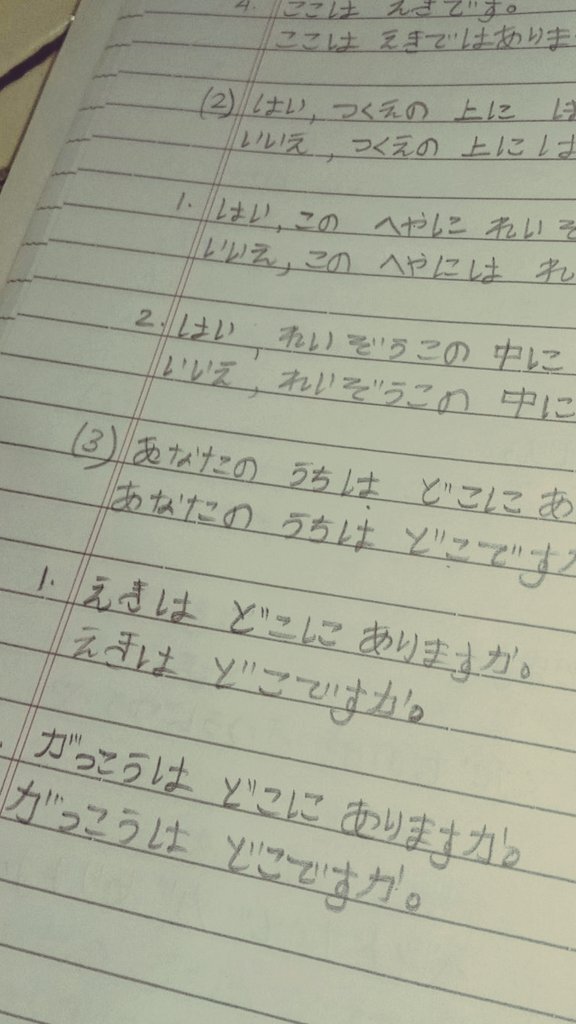 4. ここは えきです。
ここは えきではありま
(2) はい, つくえの 上に は
いいえ, つくえの 上には
1. はい, この へやに れいぞ
いいえ, この へやには れ
2. はい, れいぞうこの 中に
いいえ, れいぞうこの 中に
(3) あなたの うちは どこに あ
あなたの うちは どこですか
1. えきは どこに ありますか。
えきは どこですか。
がっこうは どこに ありますか。
がっこうは どこですか。